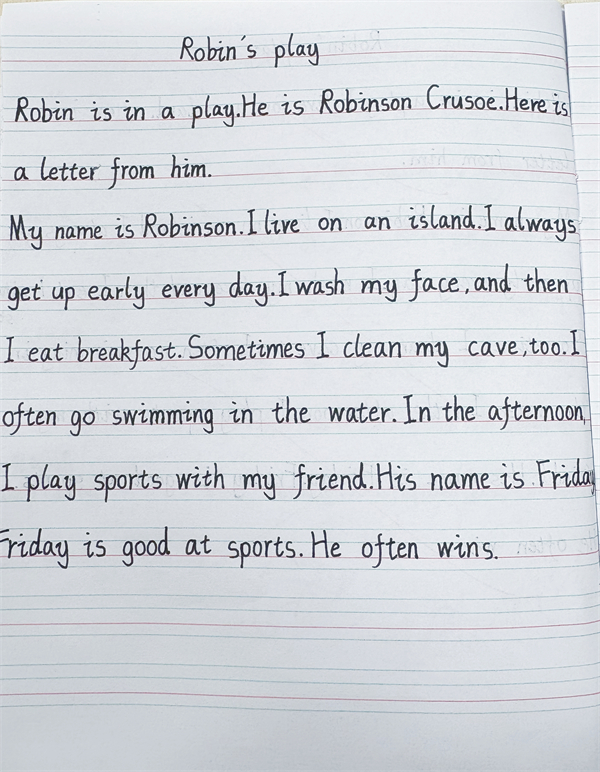 Robin's play
Robin is in a play.He is Robinson Crusoe.Here is
a letter from him.
My name is Robinson.I live on an island.I always
get up early every day.I wash my face,and then
I eat breakfast.Sometimes I clean my cave,too.I
often go swimming in the water.In the afternoon,
I play sports with my friend.His name is Friday
Friday is good at sports.He often wins.